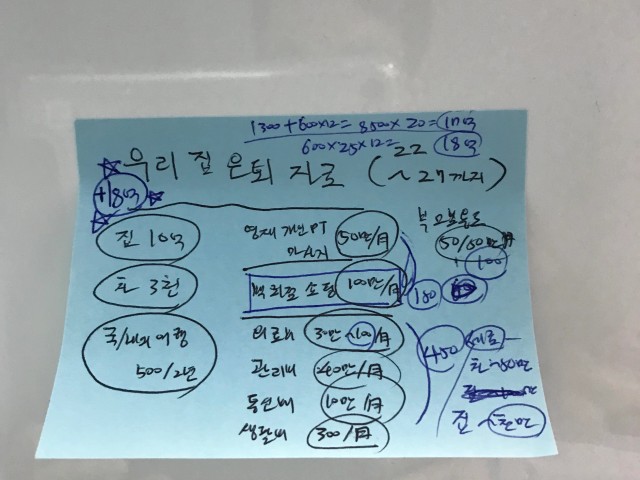 1300+600×12= 8500×20=17억
600×25×12= 18억
우리 집 은퇴 자료 (~27까지)
22
+18억
집 10억
차 3천
국/내외 여행
500/2년
개인PT
마사지
50만/月
백화점 쇼핑
100만/月
의료비
30만
100/月
관리비
40만/月
통신비
10만/月
생활비
300/月
50/80만
100
180
450
세금
차 80만
집 천만